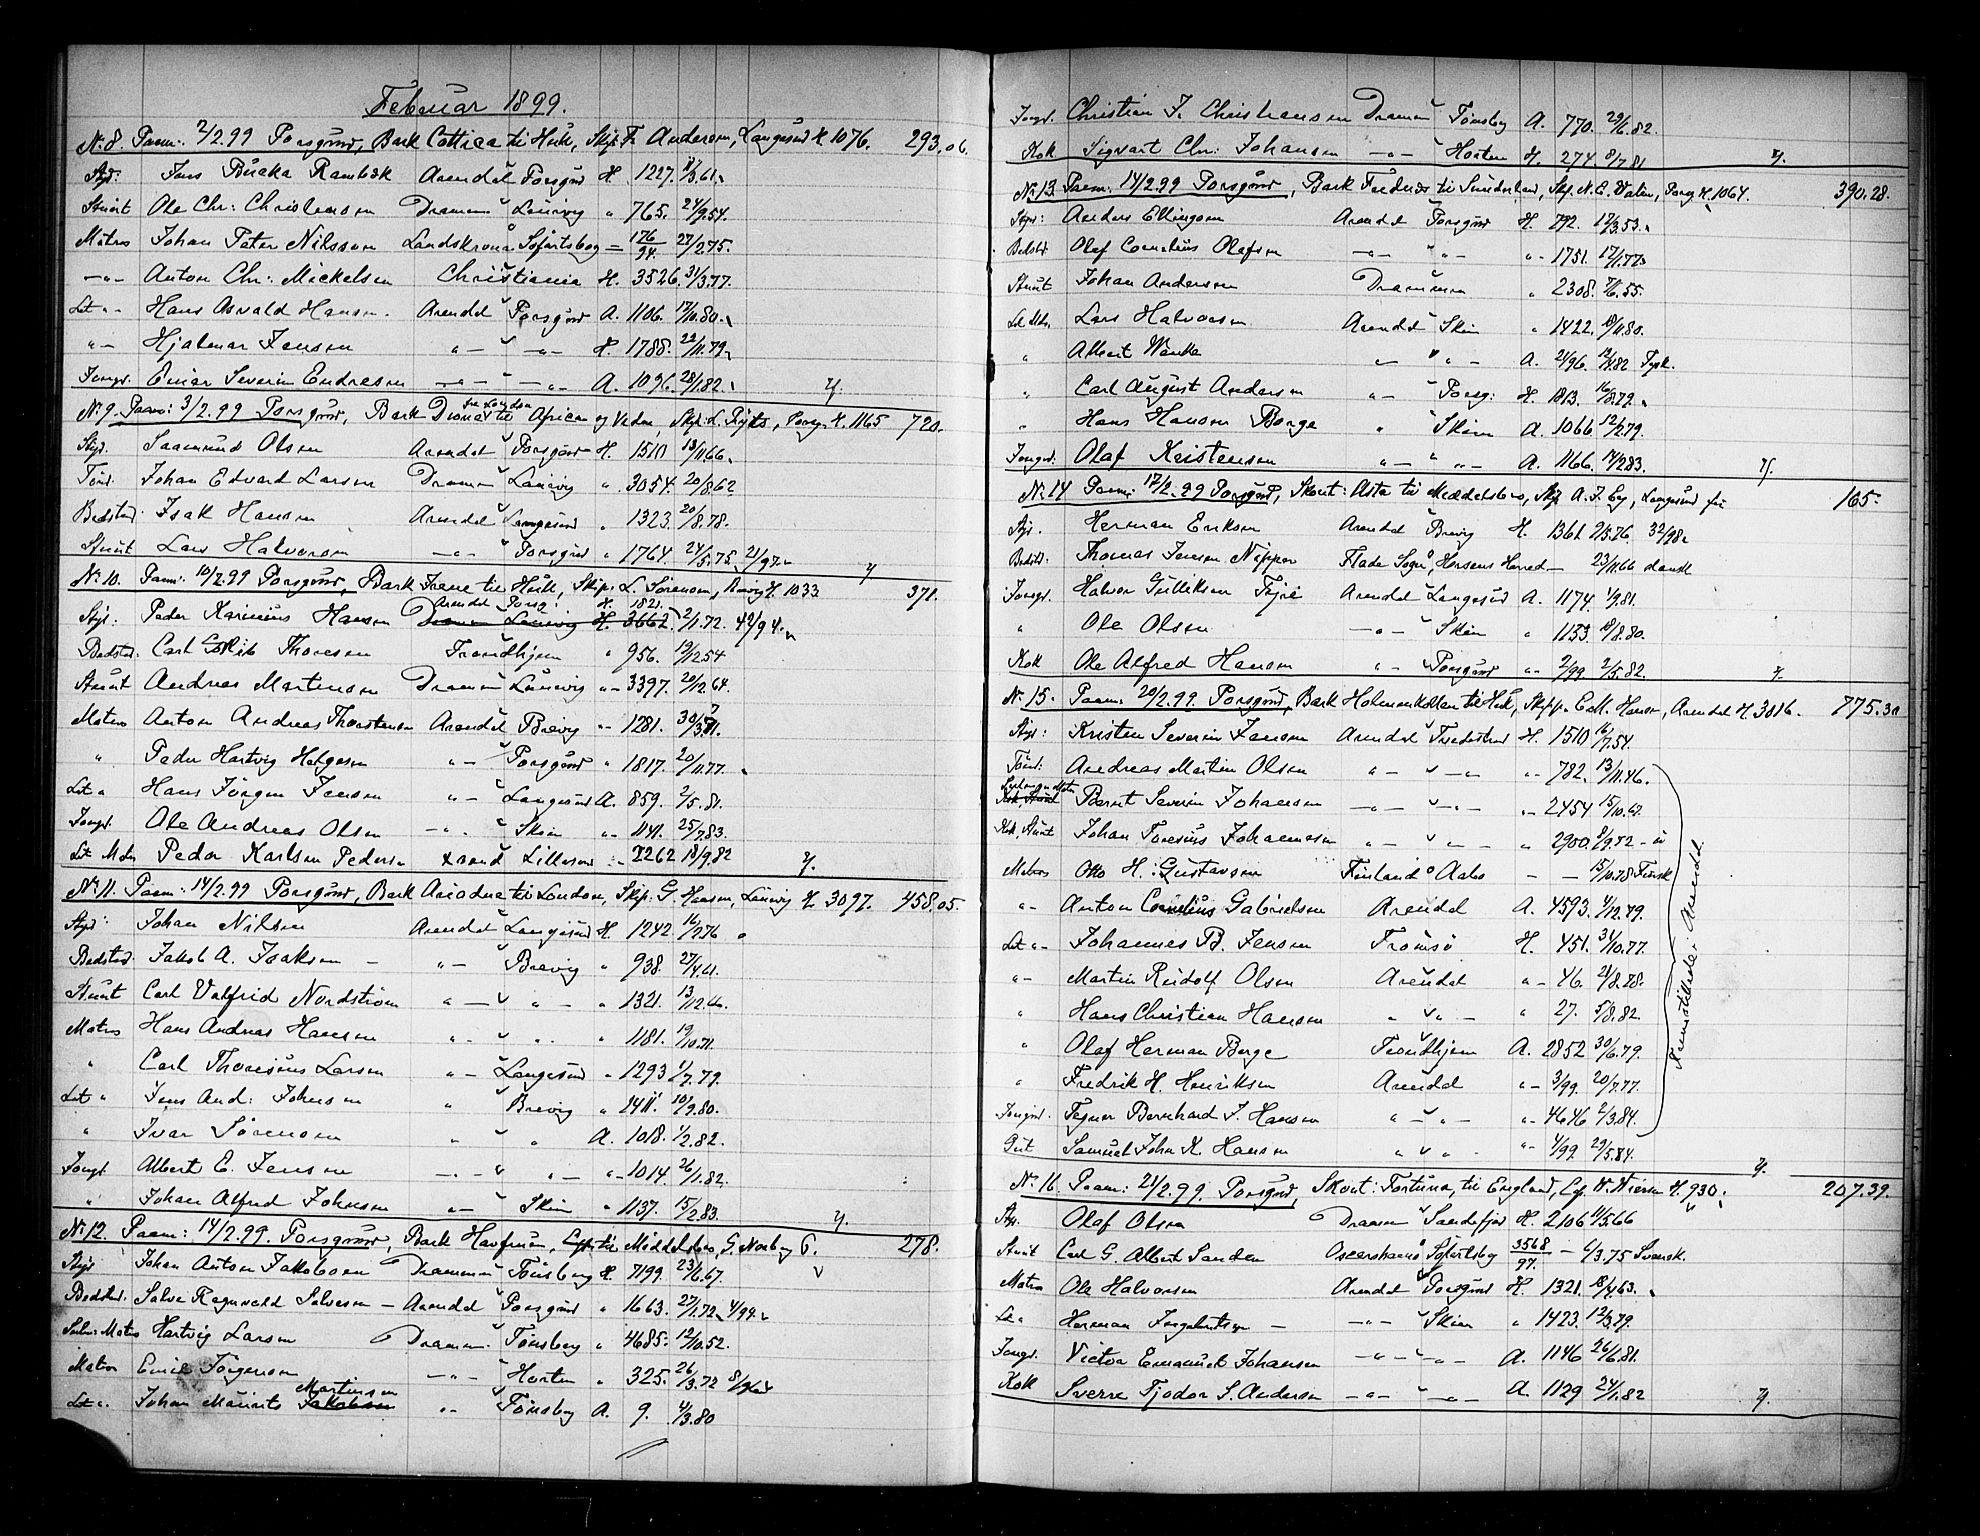 Februar 1899.
No 8. Paam: 2/2.99 Porsgrund, Bark Cottica til Hull, Skip. Fr. Anderson, Langesund H 1076. 293.06.
Styr: Jens Buaka Rambæk Arendal Porsgrund H. 1227. 3.61.
Stuut Ole Chr: Christensen Drammen Laurvig " 765. 24/9.54.
Matros Johan Peter Nilsson Landskrona Sjöfartsbog = 176/94. 27/2 75.
-"- Anton Chr: Mickelsen Christiania H. 3526. 31/3.77.
Let "- Hans Osvald Hansen. Arendal Porsgrund A. 1106. 17/10.80.
"- Hjalmar Jensen "- -"- H. 1788. 22/11.79.
Jungd. Einar Severin Endresen -"- -"- A. 1096. 28/1.82. 4.
No 9. Paam: 3/2.99 Porsgrund, Bark Diana fra London til Africa og Videre Skip: L. , Porsg. H. 1165 720.
Styr. Saamund Olsen Arendal Porsgrund H. 1510 13/11.66.
Tømd. Johan Edvard Larsen Drammen Laurvig " 3054. 20/8.62
Bedstmd. Isak Hansen Arendal Langesund " 1323. 20/8.78.
Stuut Lars Halvorsen -"- Porsgrund " 1764. 24/5.75. 21/97. 4
No 10. Paam: 10/2.99 Porsgrund, Bark Irene til Hull, Skip: L. Sørensen, Brevig H. 1033 371.
Arendal Porsg: H. 1821.
Styr. Peder Karinius Hansen Drammen Laurvig H. 3662. 2/1.72. 42/94.
Bedstmd. Carl Gottlib Thoresen Trondhjem " 956. 12/12 54
Stuut Andreas Martinsen Drammen Laurvig "- 3397. 20/12.64.
Matros Anton Andreas Thorstensen Arendal Brevig "- 1281. 30/3.71.
" Peder Hartvig Helgesen "- Porsgrund " 1817. 20/11.77.
Let " Hans Jörgen Jensen "- Langesund A. 859. 2/5.81.
Jungd. Ole Andreas Olsen -". " Skien "- 1141. 25/7.83.
Let Matr Peder Karlsen Pedersen Xsand Lillesand "- 2262 18/9.82 4.
No 11. Paam: 14/2.99 Porsgrund, Bark Ariadne til London, Skip: G. Hansen, Laurvig H. 3097. 458.05.
Styr: Johan Nilsen Arendal Langesund H. 1242 16/2 76
Bedstmd. Jakob A. Isaksen - "- Brevig " 938. 27/4.61.
Stuut Carl Valfrid Nordstrøm "- " - " 1321. 13/12.66.
Matros Hans Andreas Hansen ". " ". " 1181. 19/10.71.
" Carl Thoresius Larsen "- Langesund " 1293 1/7.79.
Let " Jens And: Johnsen " Brevig " 1411. 10/9.80.
" Ivar Sørensen " " A. 1018. 1/2.82.
Jungd. Albert E. Jensen -". " " - "- 1014. 26/1.82.
" Johan Alfred Johnsen "- Skien " 1137. 15/2.83. 4.
No 12. Paam: 14/2.99. Porsgrund, Bark Havfruen, til Middelsbro, G. Norberg 6. 278.
Styr Johan Anton Jakobsen Drammen Tönsberg H. 7199. 23/6.67.
Bedstmd. Salve Ragnvald Salvesen - Arendal Porsgrund " 1663. 27/1.72. 4/94.
Matros Hartvig Larsen Drammen Tönsberg " 4685. 12/10.52.
Matros Emil Jörgensen -"- Horten " 325. 26/3.72
Let ". Johan Mauritz Jakobsen Martinsen " Tönsberg A. 9. 4/3.80
Jungd. Christian F. Christiansen Drammen Tönsberg A. 770. 29/6.82.
Kok Sigvart Chr: Johansen -"- Horten H. 274. 8/7.81 4.
No 13. Paam: 14/2.99 Porsgrund, Bark Frednæs til Sunderland, Skip. N. E. , Porsg. H. 1064. 390.28.
Styr: Anders Ellingsen Arendal Porsgrund H. 792. 12/3.53.
Bedstmd. Olaf Cornelius Olafsen -"- " "- "- 1751. 17/1.77.
Stuut Johan Andersen Drammen " 2308. 7/6.55.
Let Matr. Lars Halvorsen Arendal Skien " 1422. 18/11.80.
" Albert Wanke "- " "- A. 21/96. 12/9.82 Tysk.
" Carl August Andersen "- Porsg: H. 1813. 16/8.79.
" Hans Hansen Borge " Skien A. 1066. 12/2.79.
Jungd. Olaf Kristensen "- " "- A. 1166. 14/2 83. 4.
No 14 Paam: 17/2.99 Porsgrund, Skont: Asta til Middelsbro, Skip A. J. By, Langesund 165.
Styr. Herman Eriksen Arendal Brevig H. 1361. 21/5.76. 32/98.
Bedstd: Thomas Jensen Nipper Flade Sogn, Horsens Herred - 23/11.66 dansk
Jungd. Halvor Gulliksen Arendal Langesund A. 1174. 1/9.81.
" Ole Olsen -"- Skien " 1153. 18/8.80.
Kok Ole Alfred Hansen "- Porsgrund "- 2/99. 2/5.82. 4.
No 15. Paam: 20/2.99. Porsgrund, Bark Holmenkollen til Hull, Skip. E. M. Hansen, Arendal H. 3016. 775.30
Styr: Kristen Severin Jensen Arendal Tvedestrand H. 1510 16/7.54.
Tömd: Andreas Martin Olsen "- " -"- "- 782. 13/11.46.
Seilm. og Matr. Kok, Stuut Bernt Severin Johansen -"- " -"- "- 2454 15/10.67.
Kok, Stuut Johan Toresius Johannesen "- " "- " 2900. 8/9.52 -
Matros Otto H. Gustavson Finland Aabo - - 15/10.78 Finsk
"- Anton Cornelius Gabrielsen Arendal A. 4593. 4/12.79.
Let "- Johannes B. Jensen Tromsö H. 451. 31/10.77.
"- Martin Rudolf Olsen Arendal "- 46. 21/8.78.
" Hans Christian Hansen " " "- " 27. 5/8.82.
" Olaf Herman Berge Trondhjem A. 2852 30/6.79.
" Fredrik H. Henriksen Arendal "- 3/99. 20/7.77.
Jungd. Tegner Bernhard J. Hansen "- " - "- 4646 2/3.84.
Gut Samuel John K. Hansen " " "- 4/99. 29/5.84. 4.
Fremstillede i Arendal
No 16. Paam: 21/2.99. Porsgrund, Skont: Fortuna, til England, H. 930. 207.39.
Styr. Olaf Olsen Drammen Sandefjord H. 2106 11/5.66
Stuut Carl G. Albert Sanden Oscarshamn Sjöfartsbog 3568/97. - 4/3.75 Svensk.
Matros Ole Halvorsen Arendal Porsgrund H. 1321. 18/4.63.
Let " Herman Ingebretsen - -"- Skien " 1423. 12/3.79.
Jungd. Victor Emanuel Johansen -"- " -"- A. 1146 26/6.81.
Kok Sverre Fjodor S. Andersen -"- " -"- A. 1129 24/1.82 4.